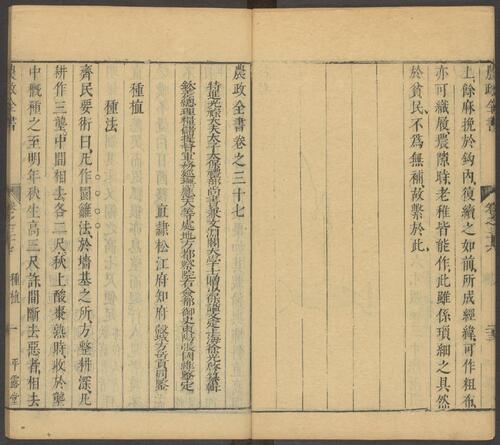 農政全書
上餘麻挽於鈎內復續之如前所成經緯可作粗布
亦可織履農隙時老稚皆能作此雖係瑣細之具然
於貧民不為無補故繫於此
農政全書卷之三十七
特進光祿大夫太子太保禮部尚書兼文淵閣大學士贈少保諡文定上海徐光啓纂輯
欽差總理糧儲提督軍務兼巡撫應天等處地方都察院右僉都御史東陽張國維鑒定
直隸松江府知府穀城方岳貢同鑒
種植
種法
齊民要術曰凡作園籬法於墻基之所方整耕深凡
耕作三壟中間相去各二尺秋上酸棗熟時收於壟
中概種之至明年秋生高三尺許間斷去惡者相去
農政全書
種植 一 平露堂